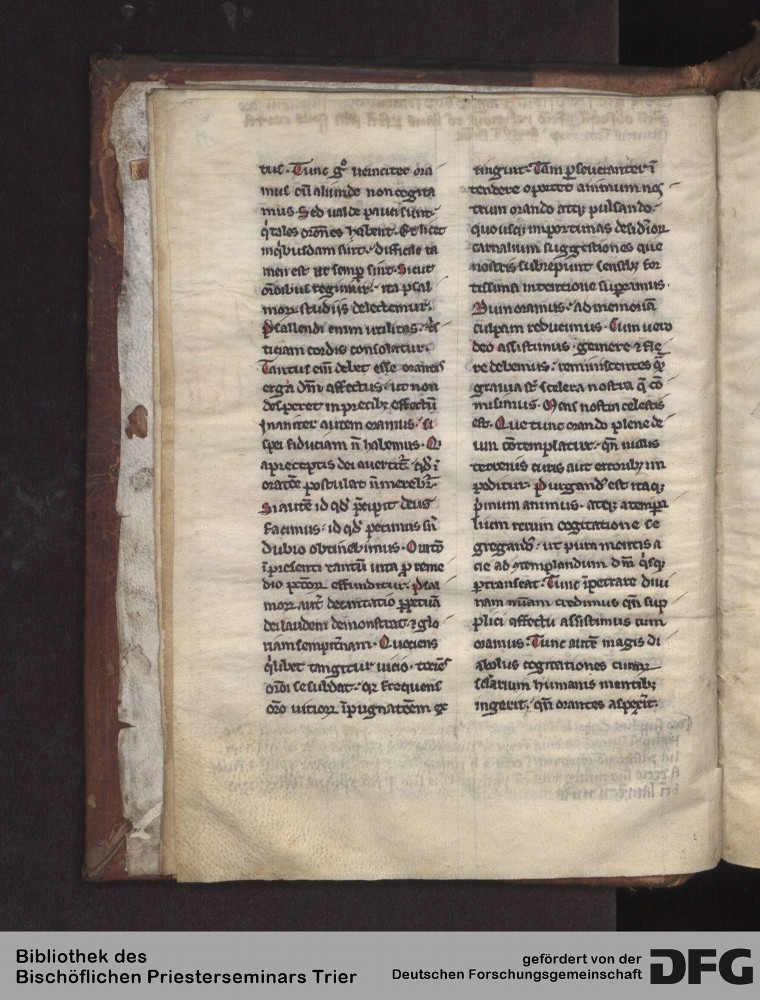 tus. Tunc gͦ ueraciter ora
mus cū aliunde non cogita
mus. Sed ualde pauci sunt.
q̇ tales or̄ones habent. Et licet
in q̇busdam sint. difficile ta
men est ut semp̱ sint. Sicut
or̄onibus regimur. ita psal
morꝝ studiis delectemur.
Psallendi enim utilitas. t̾s
ticiam cordis consolatur.
Tantus eīm debet esse orantis
erga dn̄m affectus. ut non
desperet in precibꝫ effectū
Inaniter autem oramus. si
spei fiduciam n̄ habemus. Qͥ
a preceptis dei auertit̾. qd̾ ī
orat̄oe postulat n̄ mereb̾r.
Si autē id qd̾ p̄cipit deus
facimus. id qd̾ petimus sñ
dubio obtinebimus. Or̄o
ī presenti tantū uita p̱ reme
dio pctōrꝝ effunditur. Psal
morꝝ aut̾ decantatio p̱petuā
dei laudem demonstrat. ⁊ glo
riam sempit̾nam. Quociens
q̇libet tangitur uicio. tociēs
or̄oni se subdat. qꝛ frequens
or̄o uiciorꝝ īpugnat̄oem ex
tingit. Tam p̱seueranter ī
tendere oportet animum nos
trum orando atqꝫ pulsando.
quousqꝫ importunas desid̾iorꝝ
carnalium suggestiones que
nostris subrepunt sensibꝫ for
tissima intentione sup̱emus.
Dum oramus. ad memoriā
culpam reducimus. Cum uero
deo assistimus. gemere ⁊ fle
re debemus. reminiscentes q̄
grauia st̄ scelera nostra q̄ cō
misimus. Mens nostra celestis
est. Que tunc orando plene de
um cōtemplatur. qn̄ nullis
terrenis curis aut erroribꝫ im
peditur. Purgand᷒ est itaqꝫ
ṗmum animus. atqꝫ a temp̱a
lium rerum cogitatione se
gregand᷒. ut pura mentis a
cie ad ꝯtemplandum dn̄m q̇sqꝫ
p̱transeat. Tunc īpetrare diui
nam miām credimus qn̄ sup
plici affectu assistimus cum
oramus. Tunc autē magis di
abolus cogitationes curarꝝ
sclārium humanis mentibꝫ
ingerit. qn̄ orantes aspex̾it.
Bibliothek des
Bischöflichen Priesterseminars Trier
gefördert von der
Deutschen Forschungsgemeinschaft
DFG